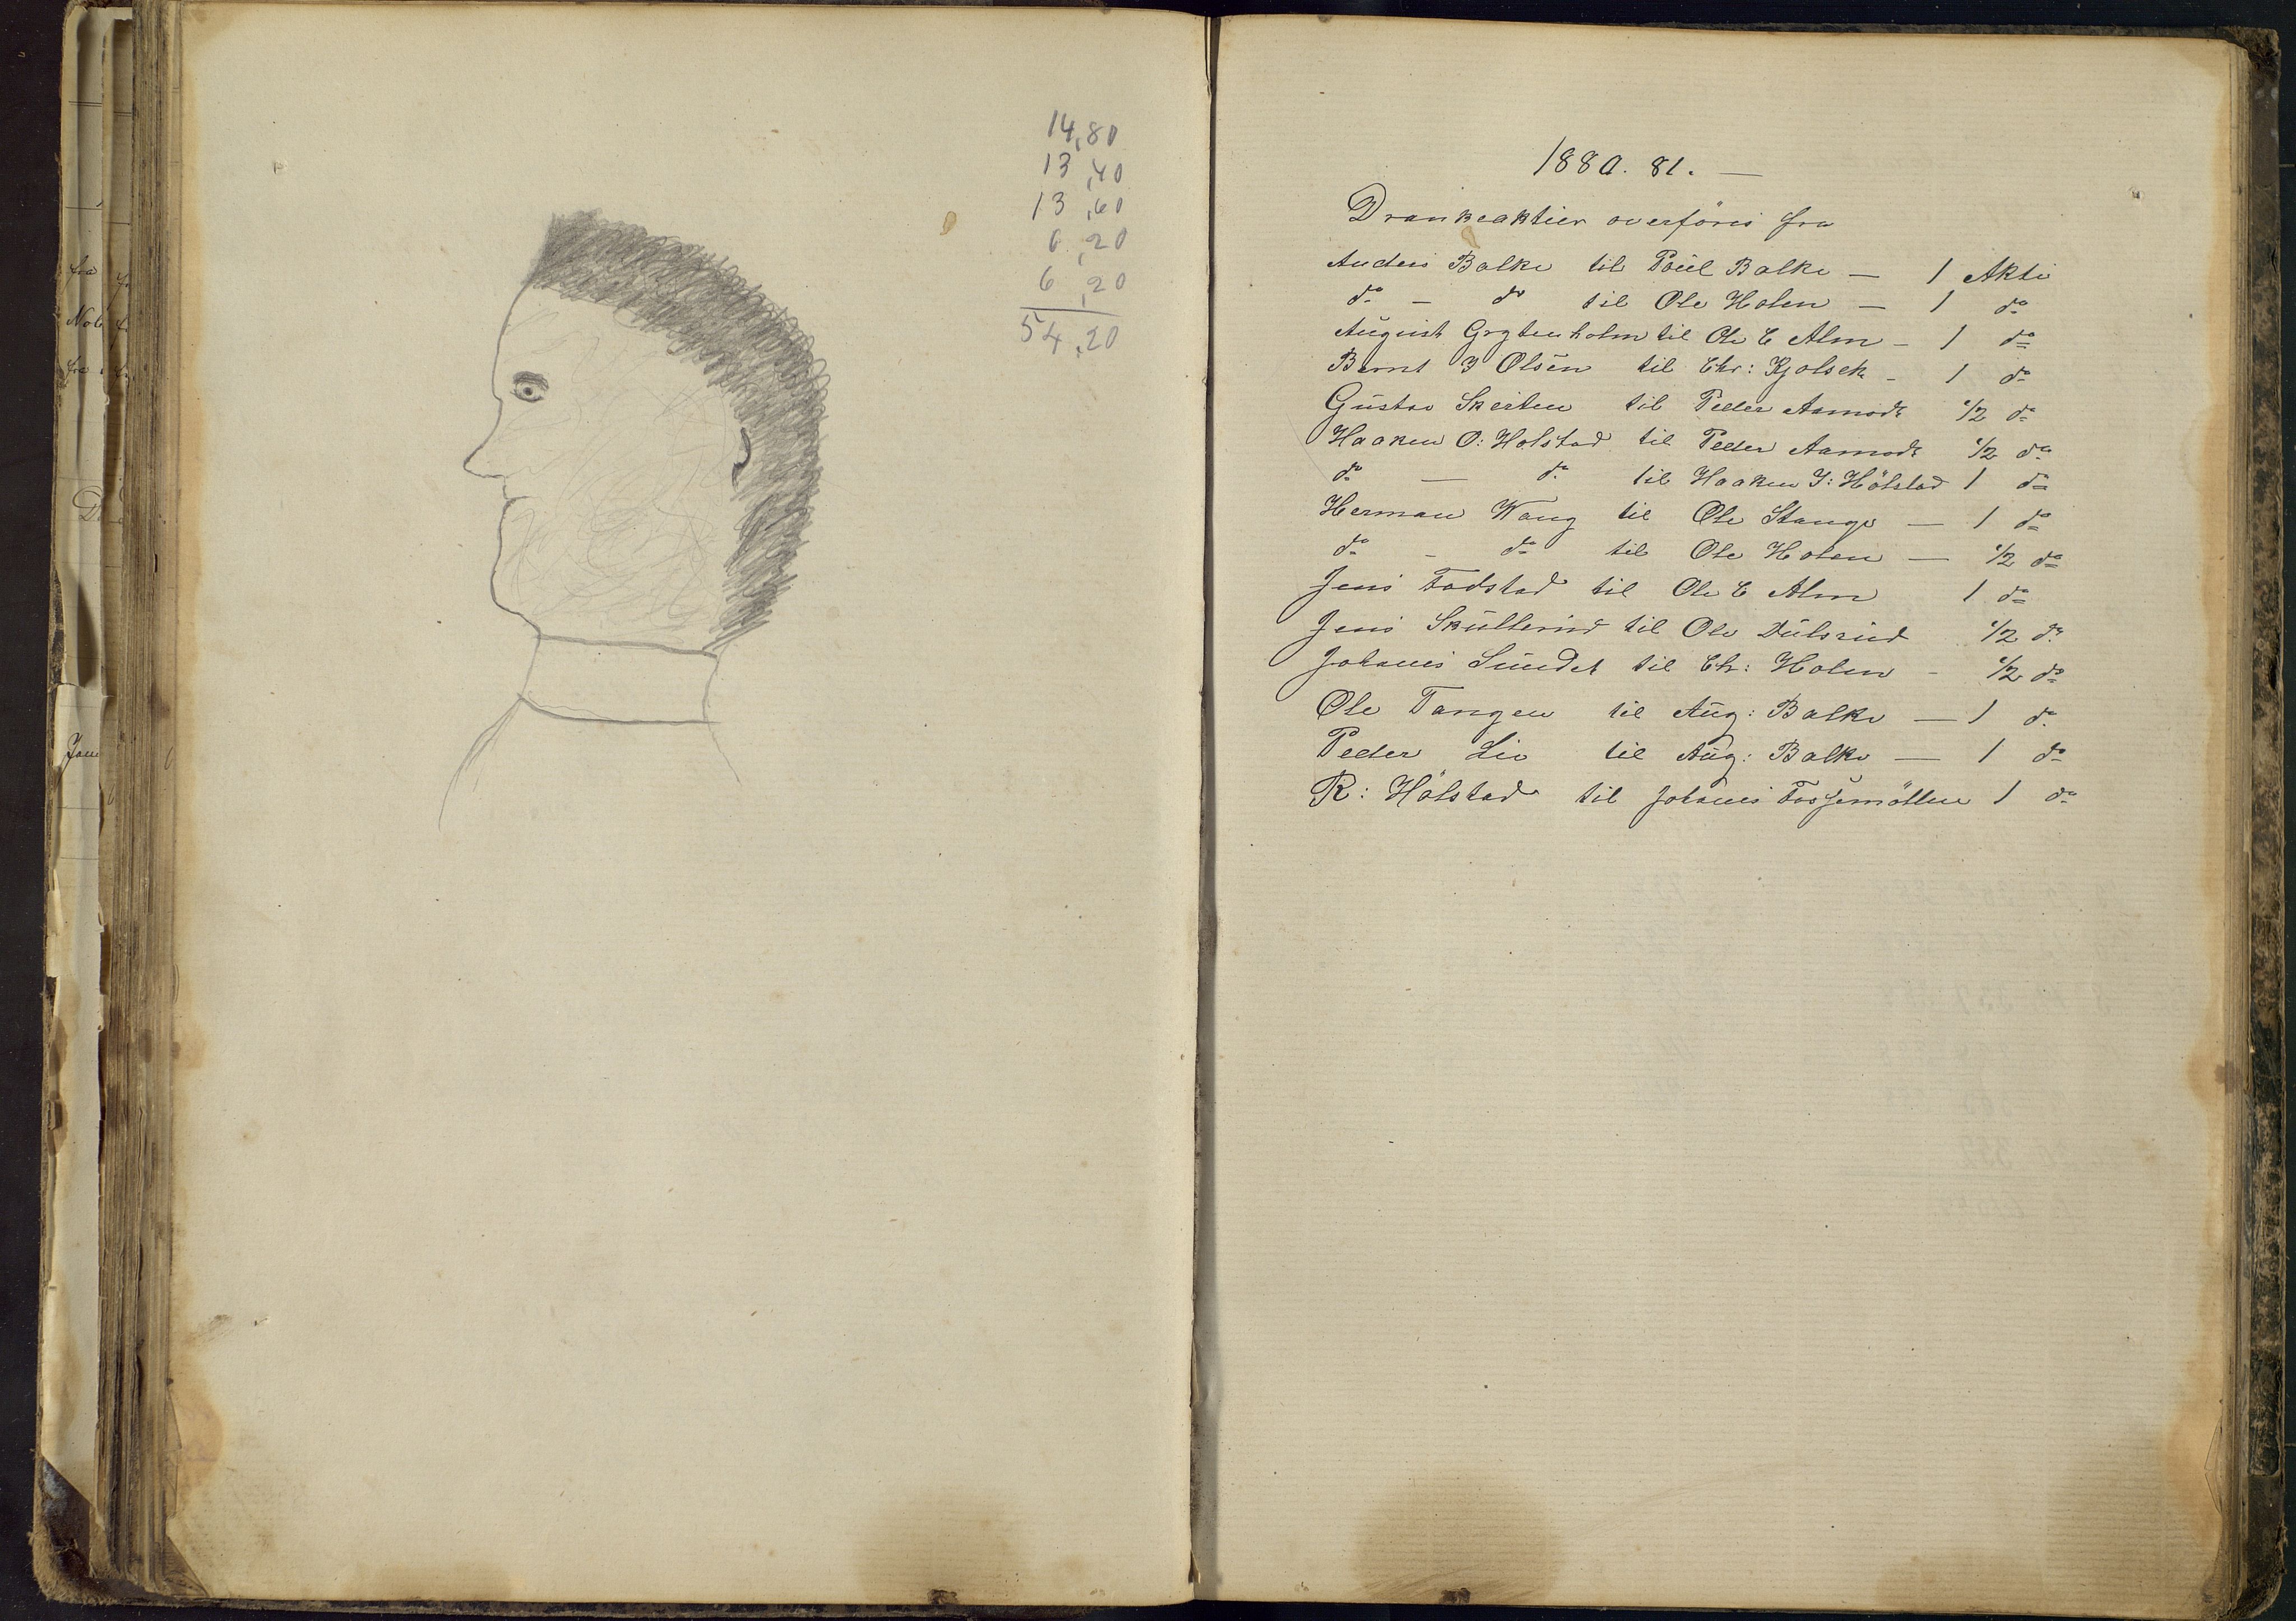 14,80
13,40
13,60
6,20
6,20
54,20
1880. 81. —
Drankeaktier overföres fra
Anders Balke til Poul Balke — 1 Aktie
do — do til Ole Holen — 1 do
August Grytenholm til Ole E Alm — 1 do
Bernt I Olsen til Chr: Kjolseth — 1 do
Gustav Skeiten til Peder Aamodt 1/2 do
Haaken O: Holstad til Peder Aamodt 1/2 do
do — do til Haaken I: Hölstad 1 do
Herman Wang til Ole Stange — 1 do
do — do til Ole Holen — 1/2 do
Jens Fodstad til Ole E Alm 1 do
Jens Skullerud til Ole Dulsrud 1/2 do
Johanes Sundet til Ch: Holen - 1/2 do
Ole Tangen til Aug: Balke — 1 do
Peder Lie til Aug: Balke — 1 do
R: Hölstad til Johanes Fossemöllen 1 do
fra
Jens